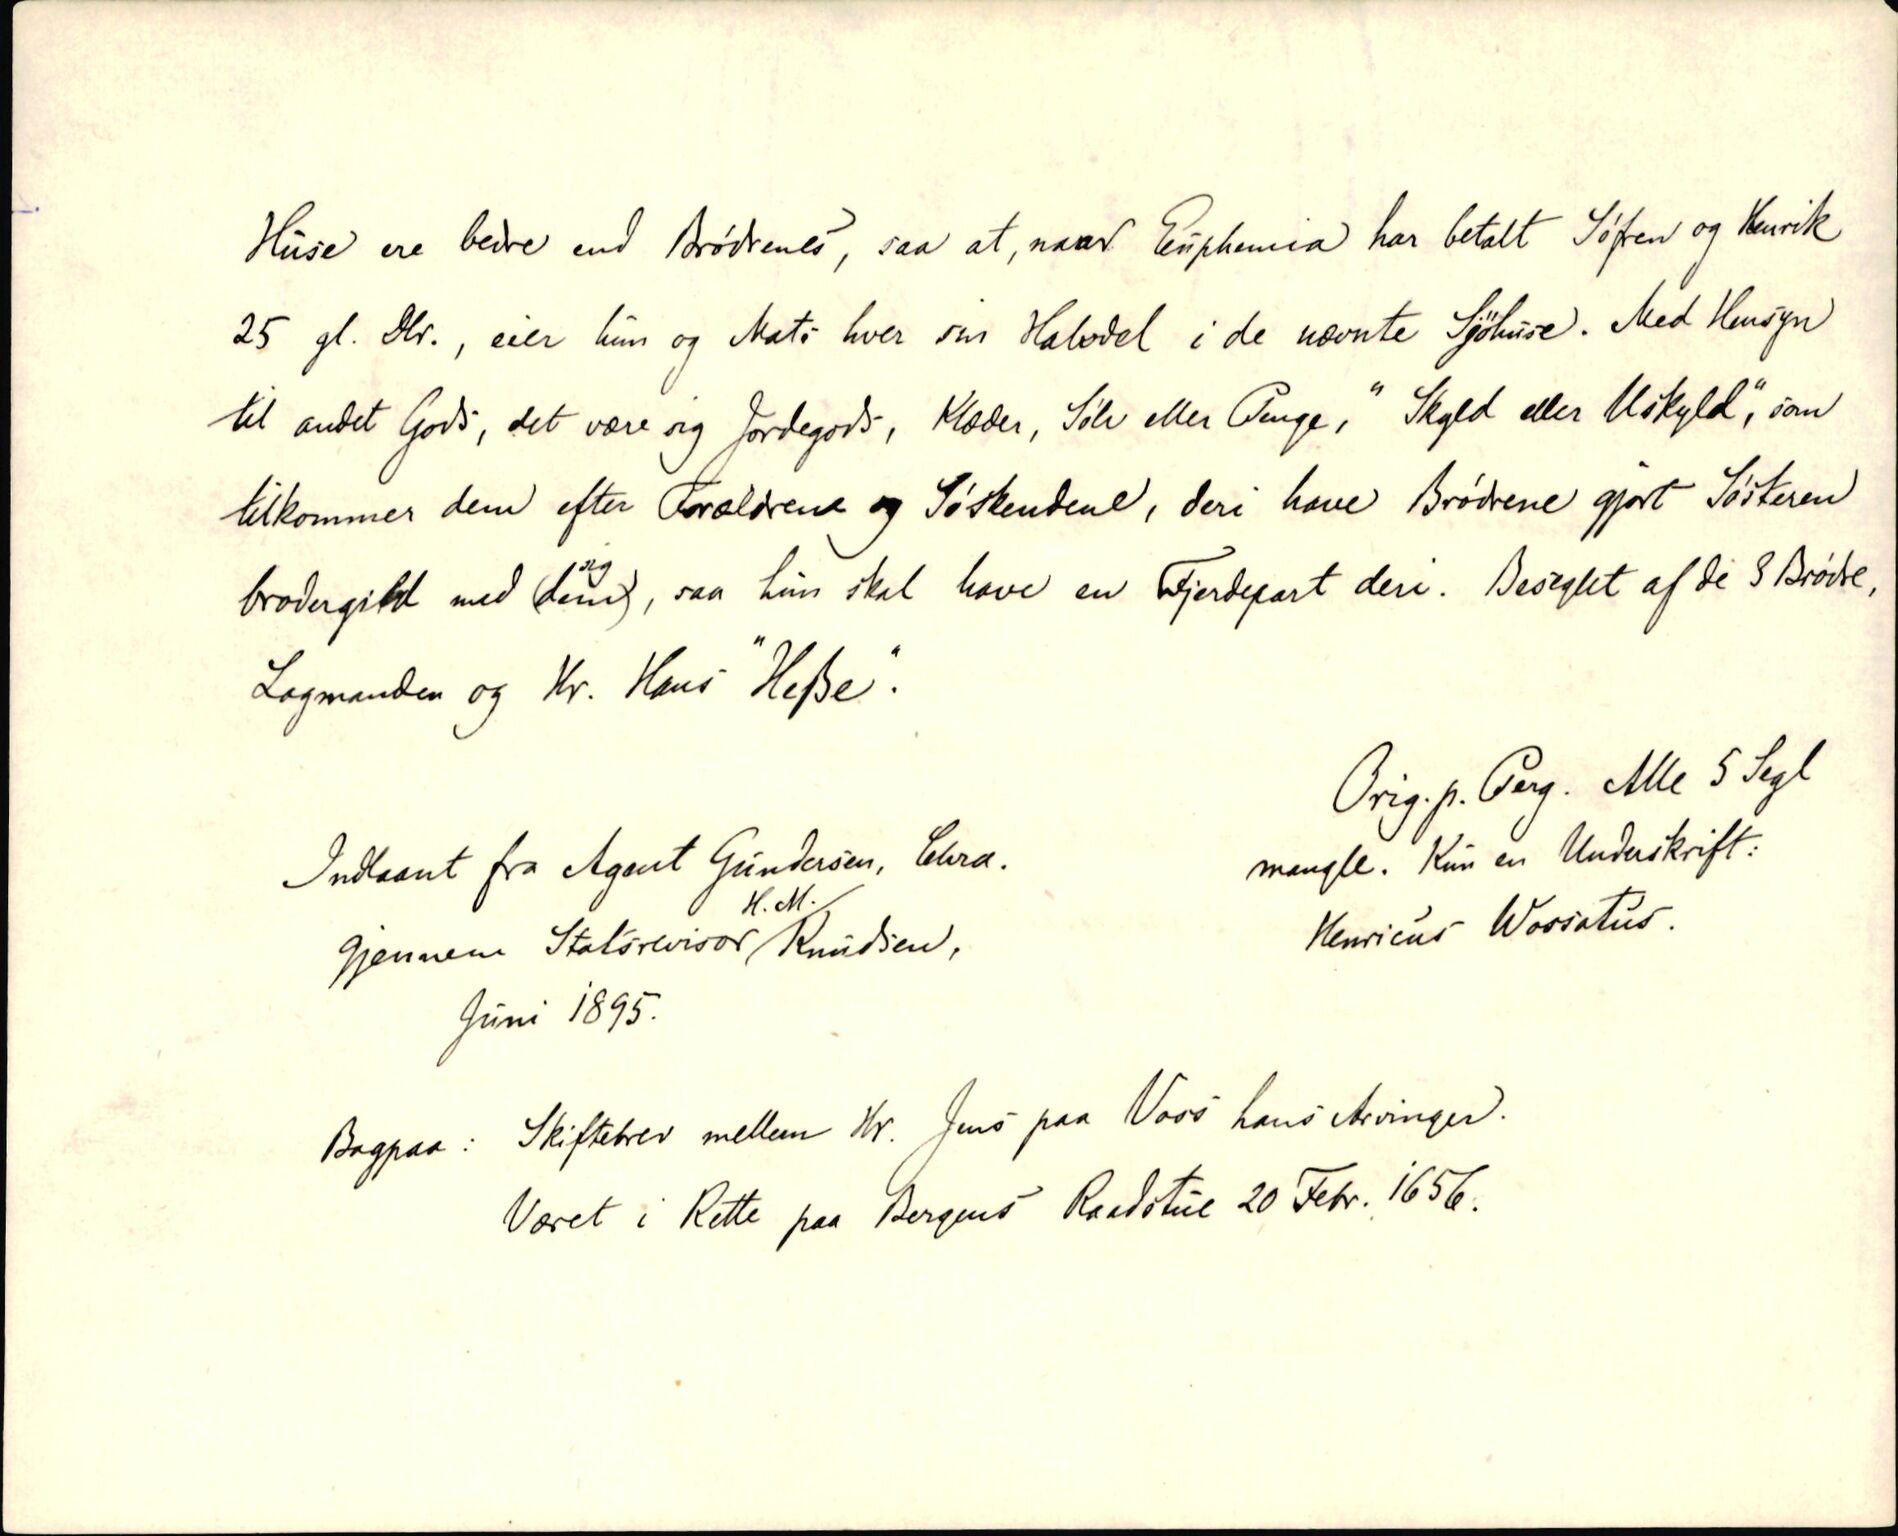 Huse ere bedre end Brødrenes, saa at, naar Euphemia har betalt Søfren og Henrik
25 gl. Dlr., eier hun og Mats hver sin Halvdel i de nævnte Sjøhuse. Med Hensyn
til andet Gods, det være sig Jordegods, Klæder, Sølv eller Penge, "Skyld eller Uskyld", som
tilkommer dem efter Forældrene og Søskendene, deri have Brødrene gjort Søsteren
brodergild med (dem) sig, saa hun skal have en Fjerdepart deri. Beseglet af de 3 Brødre,
Lagmanden og Hr. Hans "Heße".
Orig. p. Perg. Alle 5 Segl
mangle. Kun en Underskrift:
Henricus Wossatus.
Indlaant fra Agent Gundersen, Chra.
gjennem Statsrevisor H. M. Knudsen,
Juni 1895.
Bagpaa: Skiftebrev mellem Hr. Jens paa Voss hans Arvinger.
Været i Rette paa Bergens Raadstue 20 Febr. 1656.